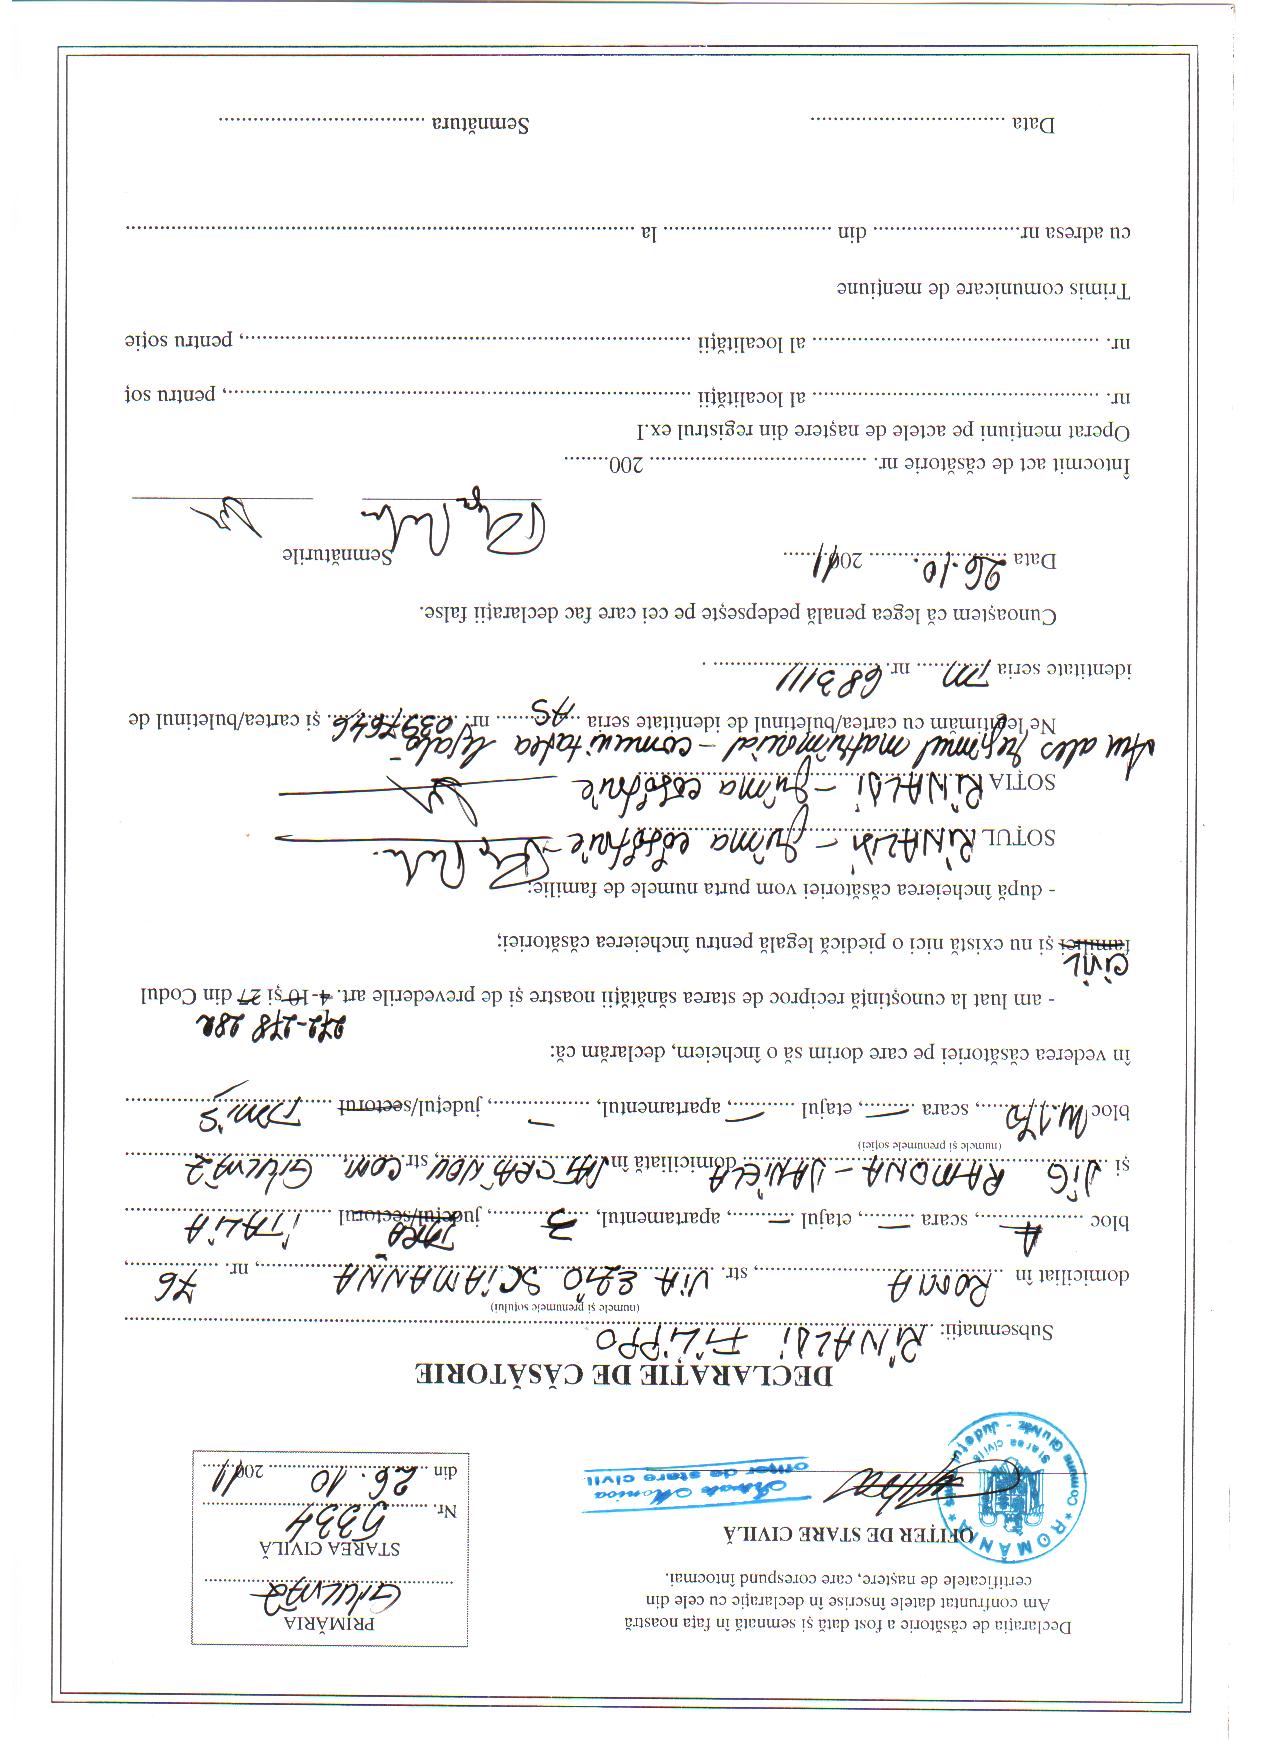 PRIMĂRIA
GIULVĂZ
STAREA CIVILĂ
Nr. 5334
din 26.10 2011
Declarația de căsătorie a fost dată și semnată în fața noastră
Am confruntat datele înscrise în declarație cu cele din
certificatele de naștere, care corespund întocmai.
OFIȚER DE STARE CIVILĂ
Monica
ofițer de stare civilă
ROMÂNIA
Comuna Giulvăz - Județul
Starea civilă
DECLARAȚIE DE CĂSĂTORIE
Subsemnații: RINALDI FILIPPO
(numele și prenumele soțului)
domiciliat în ROMA, str. VIA EZIO SCIAMANNA, nr. 76,
bloc A, scara —, etajul —, apartamentul, 3, județul/sectorul ȚARA ITALIA
și JIG RAMONA - DANIELA domiciliată în SAT CRAI NOU, str. COM. GIULVĂZ
(numele și prenumele soției)
bloc Nr. 170, scara —, etajul —, apartamentul, —, județul/sectorul TIMIȘ
în vederea căsătoriei pe care dorim să o încheiem, declarăm că:
272-278 282
- am luat la cunoștință reciproc de starea sănătății noastre și de prevederile art. 4-10 și 27 din Codul
CIVIL
familiei și nu există nici o piedică legală pentru încheierea căsătoriei;
- după încheierea căsătoriei vom purta numele de familie:
SOȚUL RINALDI -
SOȚIA RINALDI -
Am ales regimul matrimonial - comunitatea legală -
Ne legitimăm cu cartea/buletinul de identitate seria AS nr. 0397646 și cartea/buletinul de
identitate seria TM nr. 683111.
Cunoaștem că legea penală pedepsește pe cei care fac declarații false.
Data 26.10. 2011 Semnăturile
Întocmit act de căsătorie nr. ........ 200........
Operat mențiuni pe actele de naștere din registrul ex.I
nr. ........ al localității ........, pentru soț
nr. ........ al localității ........, pentru soție
Trimis comunicare de mențiune
cu adresa nr. ........ din ........ la ........
Data ........ Semnătura ........